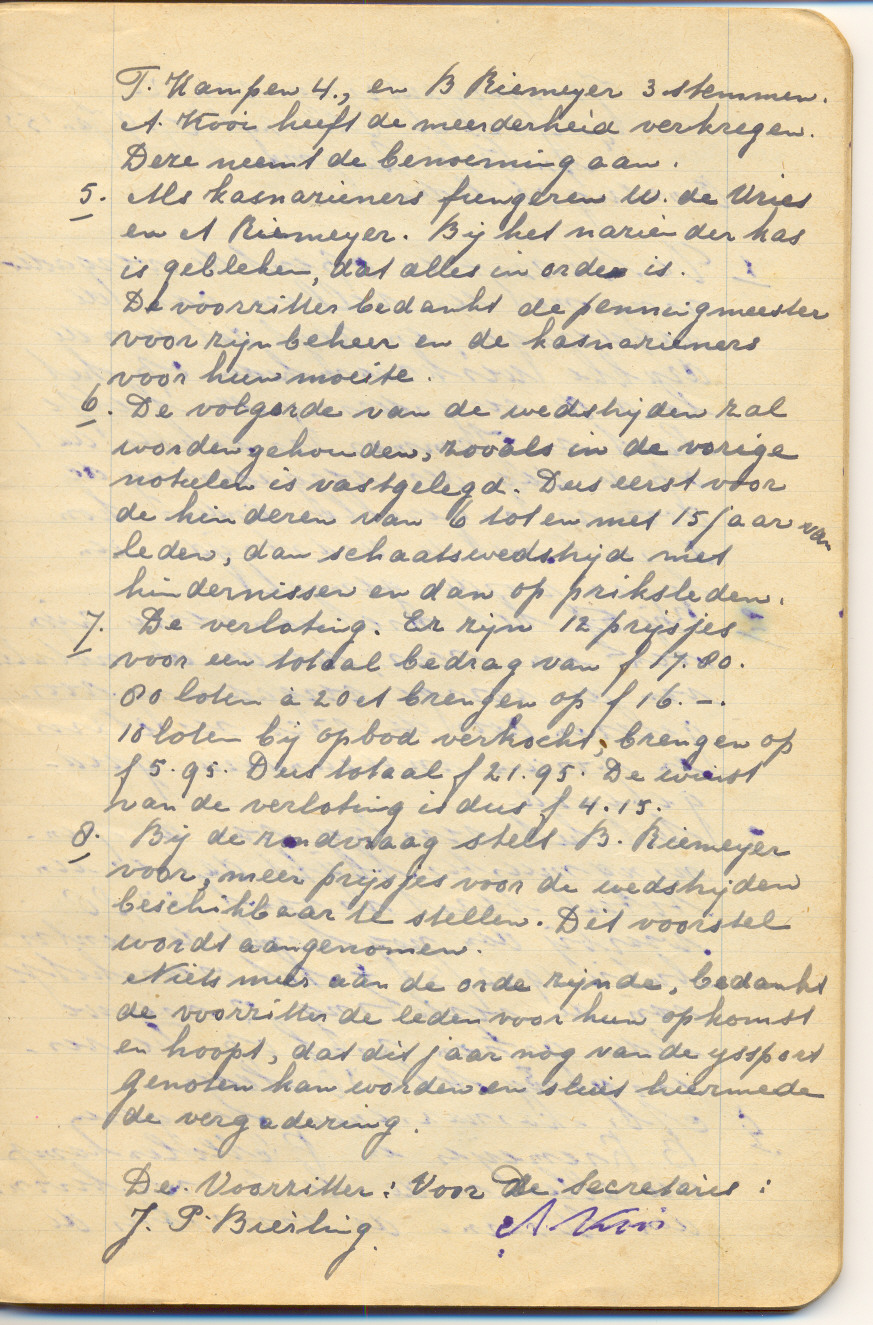 T. Kampen 4., en B Riemeyer 3 stemmen.
A. Kooi heeft de meerderheid verkregen.
Deze neemt de benoeming aan.
5. Als kasnazieners fungeren W. de Vries
en A Riemeyer. Bij het nazien der kas
is gebleken, dat alles in orde is.
De voorzitter bedankt de penningmeester
voor zijn beheer en de kasnazieners
voor hun moeite.
6. De volgorde van de wedstrijden zal
worden gehouden, zooals in de vorige
notulen is vastgelegd. Dus eerst voor
de kinderen van 6 tot en met 15 jaar van
leden, dan schaatswedstrijd met
hindernissen en dan op priksleden.
7. De verloting. Er zijn 12 prijsjes
voor een totaal bedrag van f 17.80.
80 loten à 20 ct brengen op f 16.-.
10 loten bij opbod verkocht, brengen op
f 5.95. Dus totaal f 21.95. De winst
van de verloting is dus f 4.15.
8. Bij de rondvraag stelt B. Riemeyer
voor, meer prijsjes voor de wedstrijden
beschikbaar te stellen. Dit voorstel
wordt aangenomen.
Niets meer aan de orde zijnde, bedankt
de voorzitter de leden voor hun opkomst
en hoopt, dat dit jaar nog van de yssport
genoten kan worden en sluit hiermede
de vergadering.
De Voorzitter: Voor de Secretaris:
J. P. Bierling. A Kooi